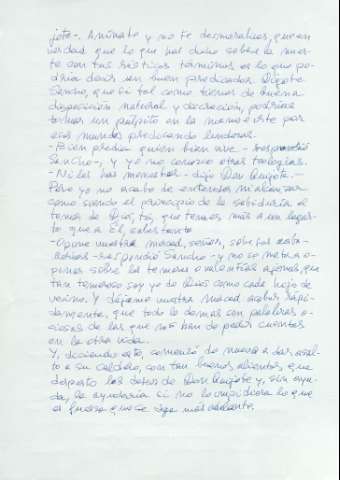 jote-. Anímate y no te desmoralices, que en
verdad que lo que has dicho sobre la muer-
te con tus rústicos términos es lo que po-
dría decir un buen predicador. Dígote,
Sancho, que si tal como tienes de buena
disposición natural y discreción, pudieras
tomar un púlpito en la mano e irte por
esos mundos predicando lindezas.
-Bien predica quien bien vive -respondió
Sancho-, y yo no conozco otras teologías.
-Ni las has menester -dijo Don Quijote-.
Pero yo no acabo de entender ni alcanzar
como siendo el principio de la sabiduría el
temor de Dios, tú, que temes más a un lagar-
to que a Él, sabes tanto.
-Opine vuestra merced, señor, sobre sus caba-
llerías -respondió Sancho- y no se meta a
opinar sobre los temores o valentías ajenas, que
tan temeroso soy yo de Dios como cada hijo de
vecino. Y déjeme vuestra merced acabar rápi-
damente, que todo lo demás son palabras o-
ciosas de las que nos han de pedir cuentas
en la otra vida.
Y, diciendo esto, comenzó de nuevo a dar asal-
to a su caldero, con tan buenos alientos, que
despertó los deseos de Don Quijote y, sin du-
da, le ayudaría si no lo impidiera lo que
es fuerza que se diga más adelante.